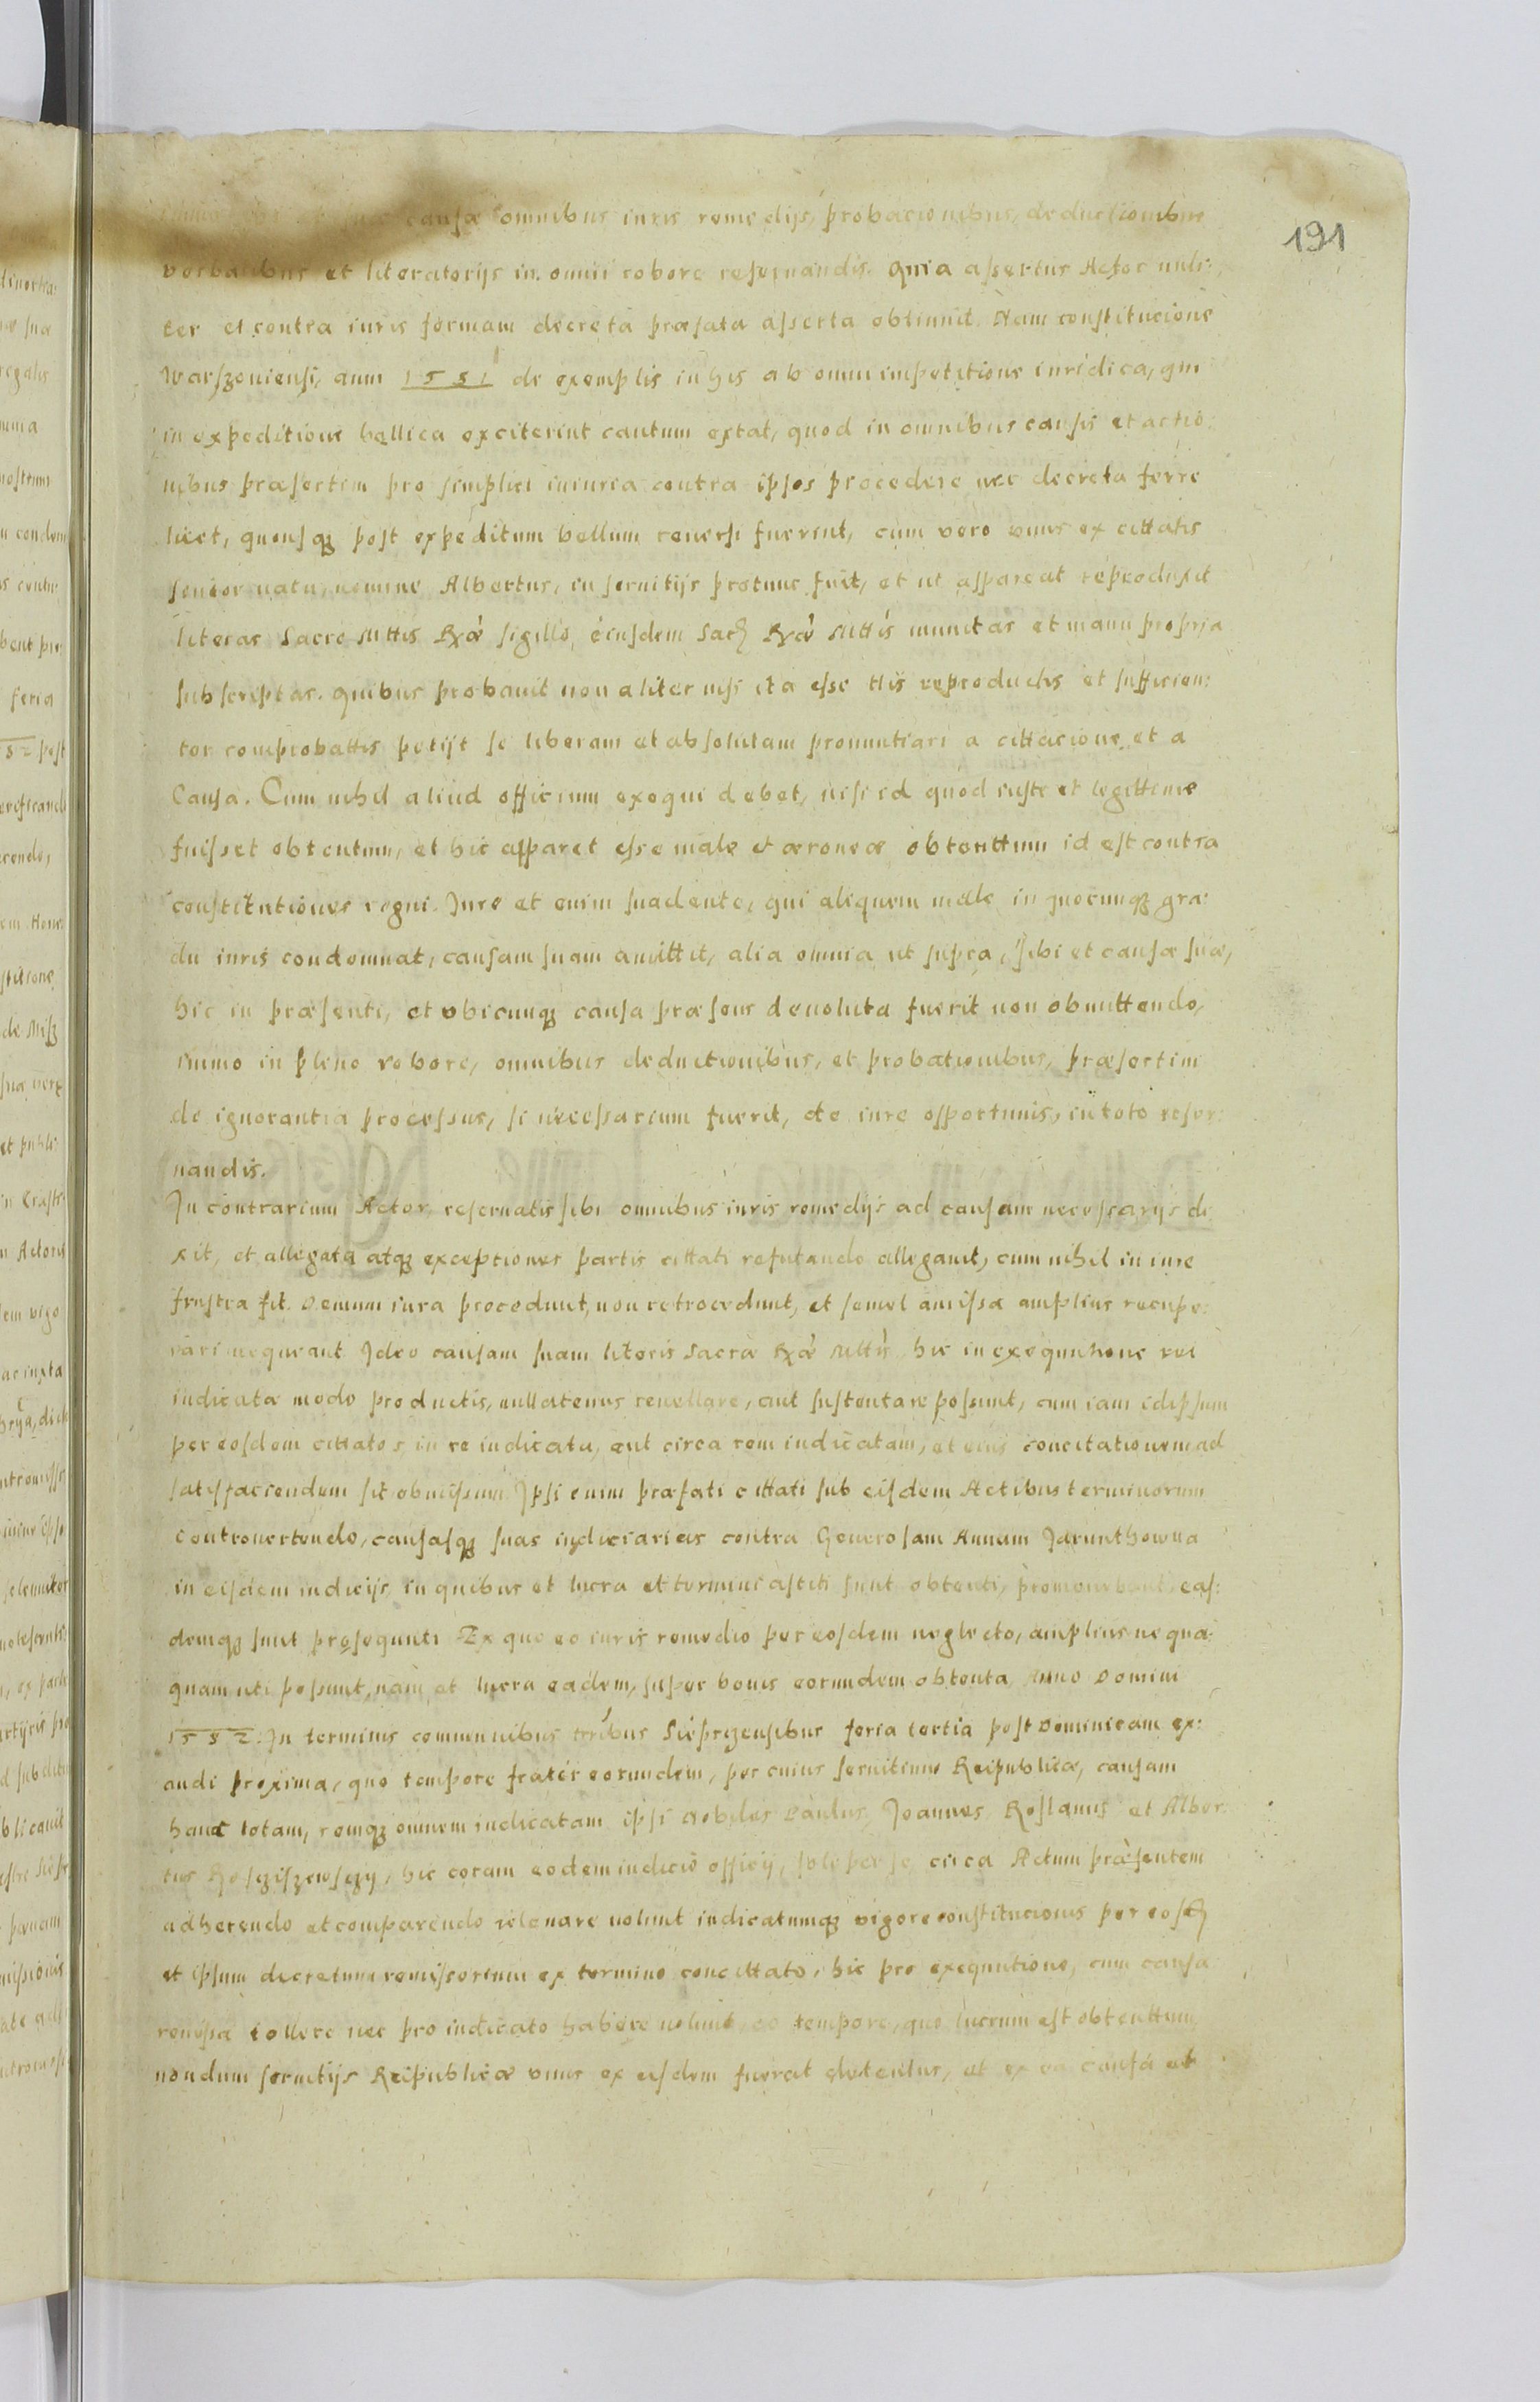 191
causæ omnibus iuris remedijs, probacionibus, deductionibus
verbalibus et literatorijs in omni robore reseruandis. Quia assertus Actor nuli:
ter et contra iuris formam decreta præfata asserta obtinuit. Nam constitucione
Warszouiensi, anni 1581 de exemptis in his ab omni impetitione iuridica, qui
in expeditione bellica exciterint cautum extat, quod in omnibus causis et actio:
nibus præsertim pro simplici iniuria contra ipsos procedere nec decreta ferre
licet, quousqꝫ post expeditum bellum reuersi fuerint, cum vero vnus ex cittatis
senior natu, nomine Albertus, in seruitijs protunc fuit, et ut appareat reproduxit
literas Sacre Mttis Rgæ sigillo, eiusdem Sacrꝫ Rgæ Mttis munitas et manu propria
subscriptas. quibus probauit non aliter nisi ita esse His reproductis et sufficien:
ter comprobattis petijt se liberam et absolutam pronuntiari a cittacione et a
Causa. Cum nihil aliud officium exequi debet, nisi id quod iuste et legittime
fuisset obtentum, et hic apparet esse male et æroneæ obtenttum id est contra
constitutiones regni. Jure et enim suadente, qui aliquem male in quocunqꝫ gra:
du iuris condemnat, causam suam amittit, alia omnia ut supra, sibi et causæ suæ,
hic in præsenti, et vbicunqꝫ causa præsens deuoluta fuerit non obmittendo,
immo in pleno robore, omnibus deductionibus, et probationibus, præsertim
de ignorantia processus, si necessarium fuerit, de iure opportunis, in toto reser:
uandis.
In contrarium Actor reseruatis sibi omnibus iuris remedijs ad causam necessarijs di
xit, et allegata atqꝫ exceptiones partis cittati refutando allegauit, cum nihil in iure
frustra fit. Demum iura procedunt, non retrocedunt, et semel amissa amplius recupe:
rari nequeant Ideo causam suam literis Sacræ Rgæ Mttis hic in exequutione rei
iudicatæ modo productis, nullatenus reuellare, aut sustentare possunt, cum iam idipsum
per eosdem cittatos in re iudicata, aut circa rem iudicatam, et eius concitationem ad
satisfaciendum sit obmissum Ipsi enim præfati cittati sub eisdem Actibus terminorum
controuertendo, causasqꝫ suas iudiciarias contra Generosam Annam Jarunthowna
in eisdem iudicijs, in quibus et lucra et termini astiti sunt obtenti, promouebant, eas:
demqꝫ sunt prosequuti Ex quo eo iuris remedio per eosdem neglecto, amplius nequa:
quam uti possunt, nam et lucra eadem, super bonis eorundem obtenta Anno Domini
1582. In terminis communibus trribus Sieprczensibus feria tertia post Dominicam ex:
audi proxima, quo tempore frater eorundem, per cuius seruitium Reipublicæ, causam
hanc totam, remqꝫ omnem iudicatam ipsi Nobiles Paulus, Joannes, Roslanus et Alber:
tus, hic coram eodem iudicio officij, circa Actum præsentem
adherendo et comparendo releuare uolunt iudicatumqꝫ vigore constitucionis per eosdꝫ
et ipsum decretum remissorium ex termino concittato, hic pro exequutione, cum causa
remissa tollere nec pro iudicato habere uolunt, eo tempore, quo lucrum est obtenttum
nondum seruitijs Reipublicæ vnus ex eisdem fuerat detentus, et ex ea causa et